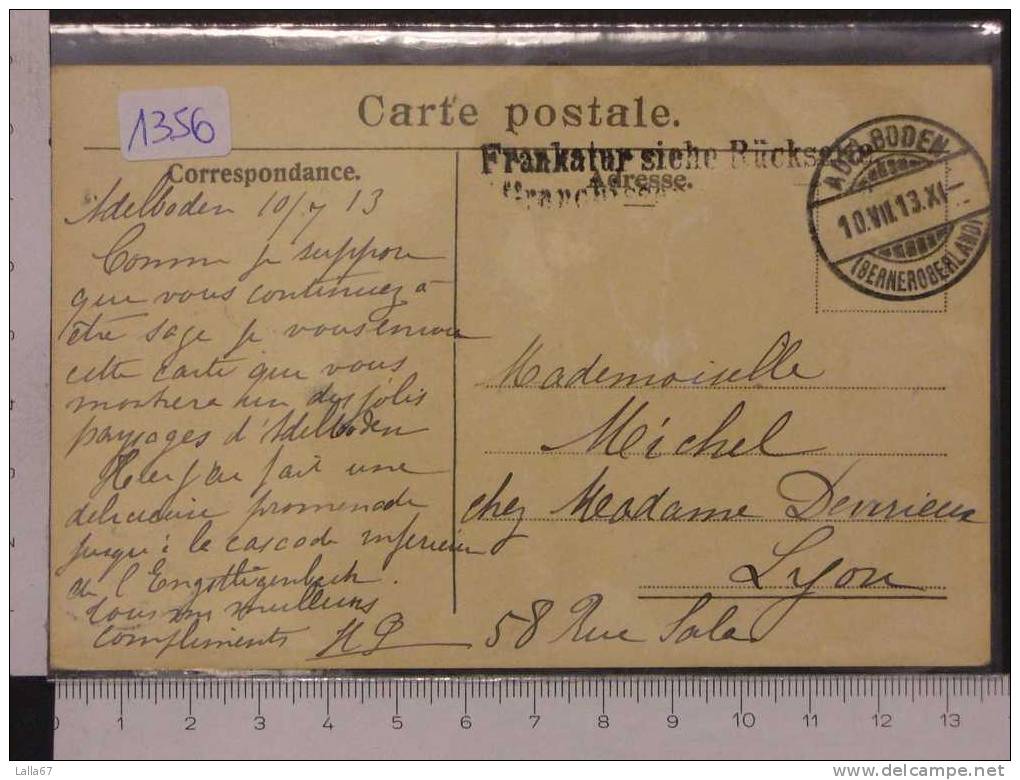 1356
Carte postale.
Frankatur siehe Rückseite
Correspondance.
Adresse.
ADELBODEN
10.VII.13.XI
(BERNEROBERLAND)
Adelboden 10/7 13
Comme je suppose
que vous continuez à
être sage je vous envoie
cette carte que vous
montrera un des jolis
paysages d'Adelboden
Hier j'ai fait une
délicieuse promenade
jusqu'à la cascade inférieure
de l'Engstligenbach.
Tous mes meilleurs
compliments HB
Mademoiselle
Michel
chez Madame Devrieux
Lyon
58 Rue Sala
0 1 2 3 4 5 6 7 8 9 10 11 12 13
Lalla67
www.delcampe.net